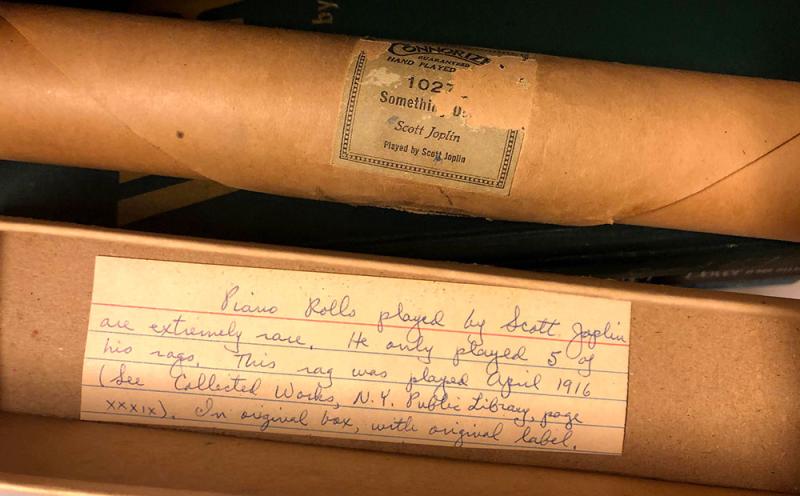 by
CONNORIZ
GUARANTEED
HAND PLAYED
102
Somethi
Scott Joplin
Played by Scott Joplin
Piano Rolls played by Scott Joplin
are extremely rare. He only played 5 of
his rags. This rag was played April 1916
(See Collected Works, N.Y. Public Library, page
XXXIX). In original box, with original label.